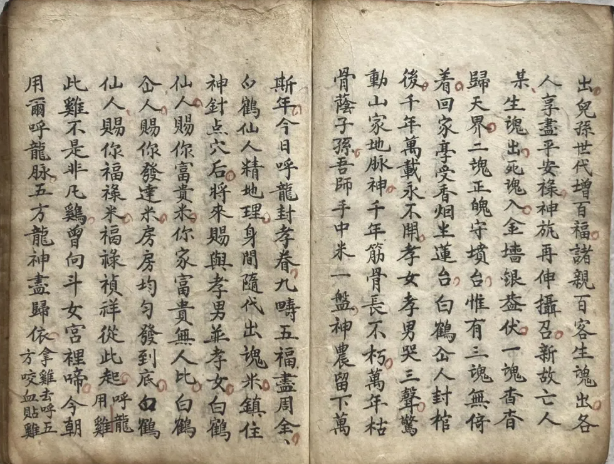 出兒孫世代增百福諸親百客生魂出各
人享盡平安祿神旐再伸攝召新故亡人
某生魂出死魂入金墻银盎伏一魂杳杳
歸天界二魂正魄守墳台惟有三魂無倚
着回家享受香烟坐蓮台白鶴仚人封棺
後千年萬載永不開孝女孝男哭三聲驚
動山家地脉神千年筋骨長不朽萬年枯
骨蔭子孫吾師手中米一盤神農留下萬
斯年今日呼龍封孝眷九疇五福盡周全
白鶴仙人精地理身間隨代出魂米鎮住
神針点穴后將來賜與孝男並孝女白鶴
仙人賜你富貴米你家富貴無人比白鶴
仚人賜你發達米房房均匀發到底白鶴
仙人賜你福祿米福祿禎祥從此起呼龍用雞
此雞不是非凡鷄曾向斗女宮裡啼今朝
用爾呼龍脉五方龍神盡歸依拿雞去呼五方咬血貼雞